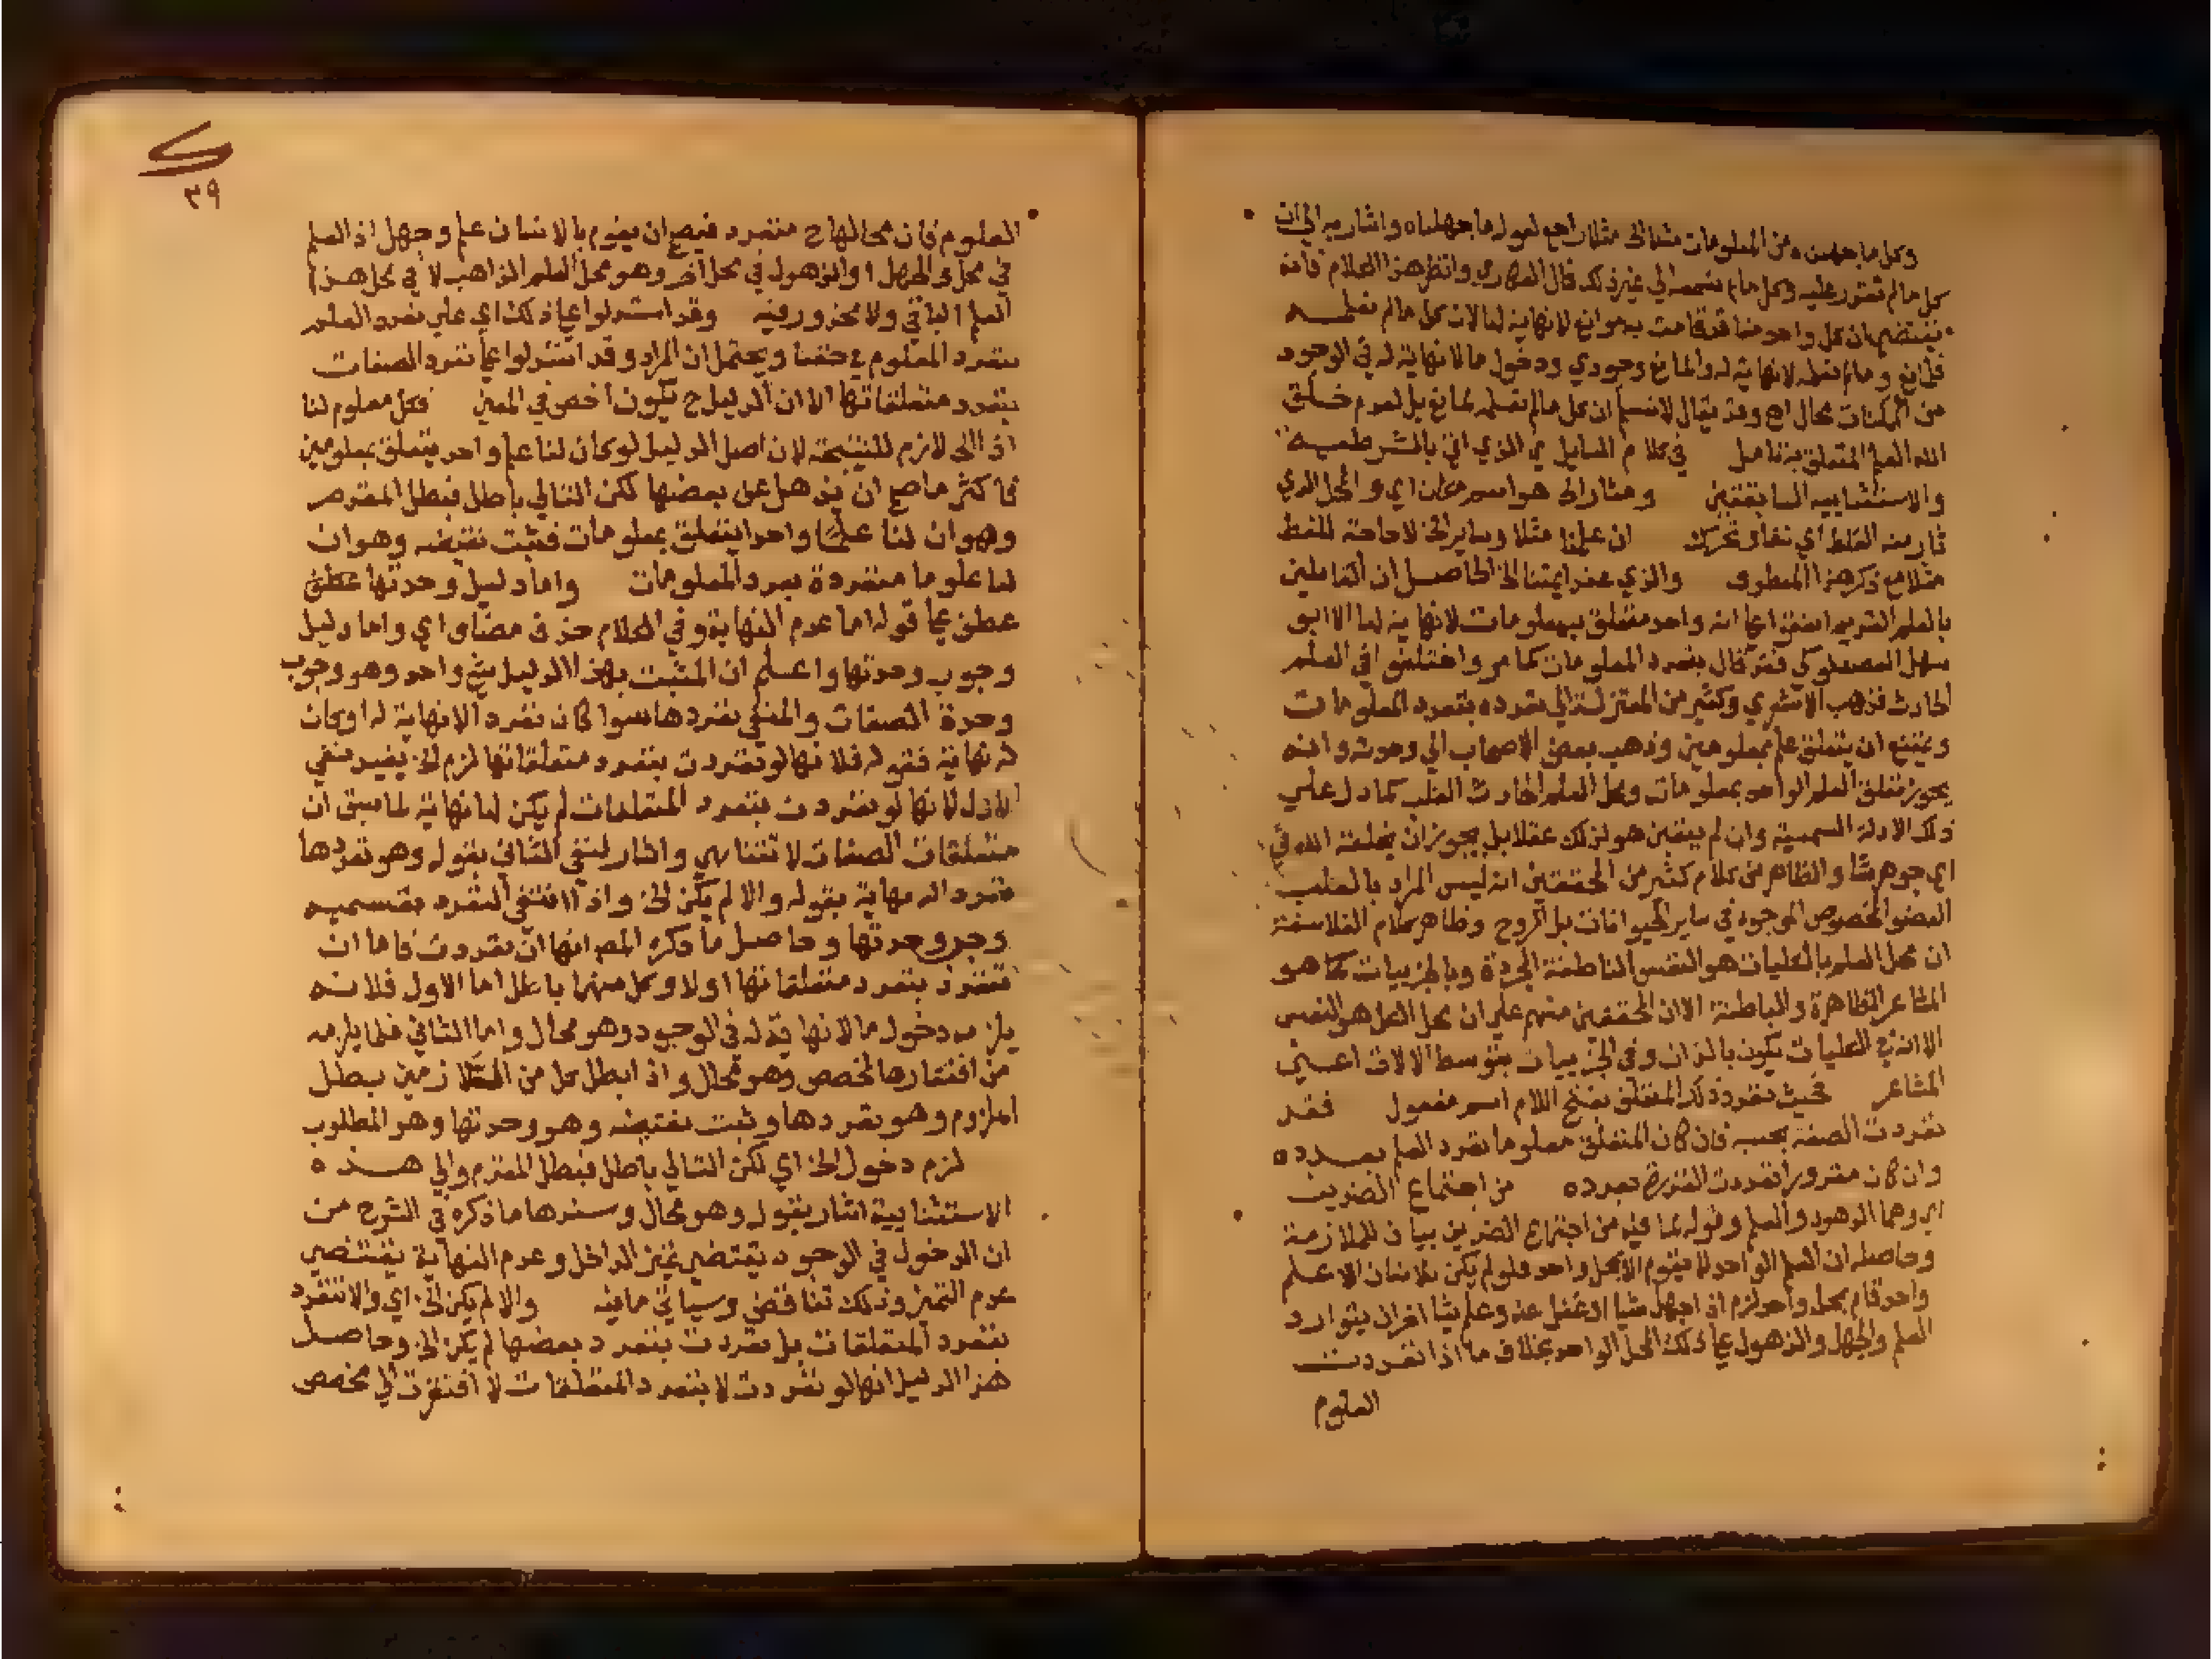 وكل ما جهلناه من المعلومات مثنا الخ مثلا راجع لقوله ما جهلناه واشار به الى ان
كل ما لم نقدر عليه وكل ما لم نسمعه الى غير ذلك قال السكوري وانظر هذا الكلام فانه
يقتضي ان كل واحد منا قد قامت به موانع لا نهاية لها لان كل ما لم نعلمه
فلمانع وما لم نعلمه لا نهاية له والمانع وجودي ودخول ما لا نهاية له في الوجود
من الممكنات محال اه وقد يقال لا نسلم ان كل ما لم نعلمه لمانع بل لعدم خلق
الله العلم المتعلق به تامل في كلام السايل الذي اتي بالشرطية
والاستثنايية السابقتين ومثار الخ هو اسم مكان اي والمحل الذي
ثار منه الغلط اي نشا وتحرك ان علمنا مثلا وساير الخ لا حاجة للفظ
مثلا مع ذكر هذا المعطوف والذي عند ايمتنا الخ الحاصل ان القايلين
بالعلم القديم اتفقوا على انه واحد متعلق بمعلومات لا نهاية لها الا ابو
سهل الصعلوكي فقد قال بتعدد المعلومات كما مر واختلفوا في العلم
الحادث فذهب الاشعري وكثير من المعتزلة الى تعدده بتعدد المعلومات
ويمتنع ان يتعلق علم بمعلومين وذهب بعض الاصحاب الى وحدته وانه
يجوز تعلق العلم الواحد بمعلومات ومحل العلم الحادث القلب كما دل على
ذلك الادلة السمعية وان لم يتعين هو لذلك عقلا بل يجوز ان يخلقه الله في
اي جوهر شا والظاهر من كلام كثير من المحققين انه ليس المراد بالقلب
العضو المخصوص الموجود في ساير الحيوانات بل الروح وظاهر كلام الفلاسفة
ان محل العلم بالكليات هو النفس الناطقة المجردة وبالجزييات كما هو
المشاعر الظاهرة والباطنة الا ان المحققين منهم على ان محل الكل هو النفس
الا انه في الكليات يكون بالذات وفي الجزييات بتوسط الالات اعني
المشاعر فحيث تعدد ذلك المتعلق بفتح اللام اسم مفعول فقد
تعددت الصفة بحسبه فان كان المتعلق معلوما تعدد العلم بعدده
وان كان مقدورا تعددت القدرة بعدده من اجتماع الضدين
اي وهما الذهول والعلم وقوله لما فيه من اجتماع الضدين بيان للملازمة
وحاصله ان العلم الواحد لا يقوم الا بمحل واحد فلو لم يكن للانسان الا علم
واحد قام بمحل واحد لزم اذا جهل شيا او غفل عنه وعلم شيا اخر ان يتوارد
العلم والجهل والذهول على ذلك المحل الواحد بخلاف ما اذا تعددت
العلوم
٣٩
العلوم فان محالها ح متعدد فيصح ان يقوم بالانسان علم وجهل اذ العلم
في محل والجهل او الذهول في محل اخر وهو محل العلم الذاهب لا في محل هذا
العلم الباقي ولا محذور فيه وقد استدلوا على ذلك اي على تعدد العلم
بتعدد المعلوم في حقنا ويحتمل ان المراد وقد استدلوا على تعدد الصفات
بتعدد متعلقاتها الا ان الدليل ح يكون اخص في المعين فكل معلوم لنا
اذ الخ لازم للنتيجة لان اصل الدليل لو كان لنا علم واحد يتعلق بمعلومين
فاكثر ما صح ان يذهل عن بعضها لكن التالي باطل فبطل المقدم
وهو ان لنا علما واحدا يتعلق بمعلومات فثبت نقيضه وهو ان
لنا علوما متعددة بعدد المعلومات واما دليل وحدتها عطف
عطف على قوله اما عدم النهاية وفي الكلام حذف مضاف اي واما دليل
وجوب وحدتها واعلم ان المثبت بهذا الدليل شي واحد وهو وجوب
وحدة الصفات والمنفي تعددها سوا كان تعدد الا نهاية له او كان
له نهاية فقوله فلانها لو تعددت بتعدد متعلقاتها لزم الخ يفيد نفي
الاول لانها لو تعددت بتعدد المتعلقات لم يكن لها نهاية لما سبق ان
متعلقات الصفات لا تتناهي واشار لنفي الثاني بقوله وهو تعددها
تعدد اله نهاية بقوله والا لم يكن الخ واذا انتفى التعدد بقسميه
وجب وحدتها وحاصل ما ذكره المص انها ان تعددت فاما ان
تتعدد بتعدد متعلقاتها اولا وكل منهما باطل اما الاول فلانه
يلزمه دخول ما لا نهاية له في الوجود وهو محال واما الثاني فلما يلزمه
من افتقارها لمخصص وهو محال واذا بطل كل من اللازمين بطل
الملزوم وهو تعددها وثبت نقيضه وهو وحدتها وهو المطلوب
لزم دخول الخ اي لكن التالي باطل فبطل المقدم والى هذه
الاستثنايية اشار بقوله وهو محال وسندها ما ذكره في الشرح من
ان الدخول في الوجود يقتضي تميز الداخل وعدم النهاية يقتضي
عدم التميز وذلك تناقض وسياتي ما فيه والا لم يكن الخ اي والا تتعدد
بتعدد المتعلقات بل تعددت بتعدد بعضها لم يكن الخ وحاصل
هذا الدليل انها لو تعددت لا بتعدد المتعلقات لا افتقرت الى مخصص